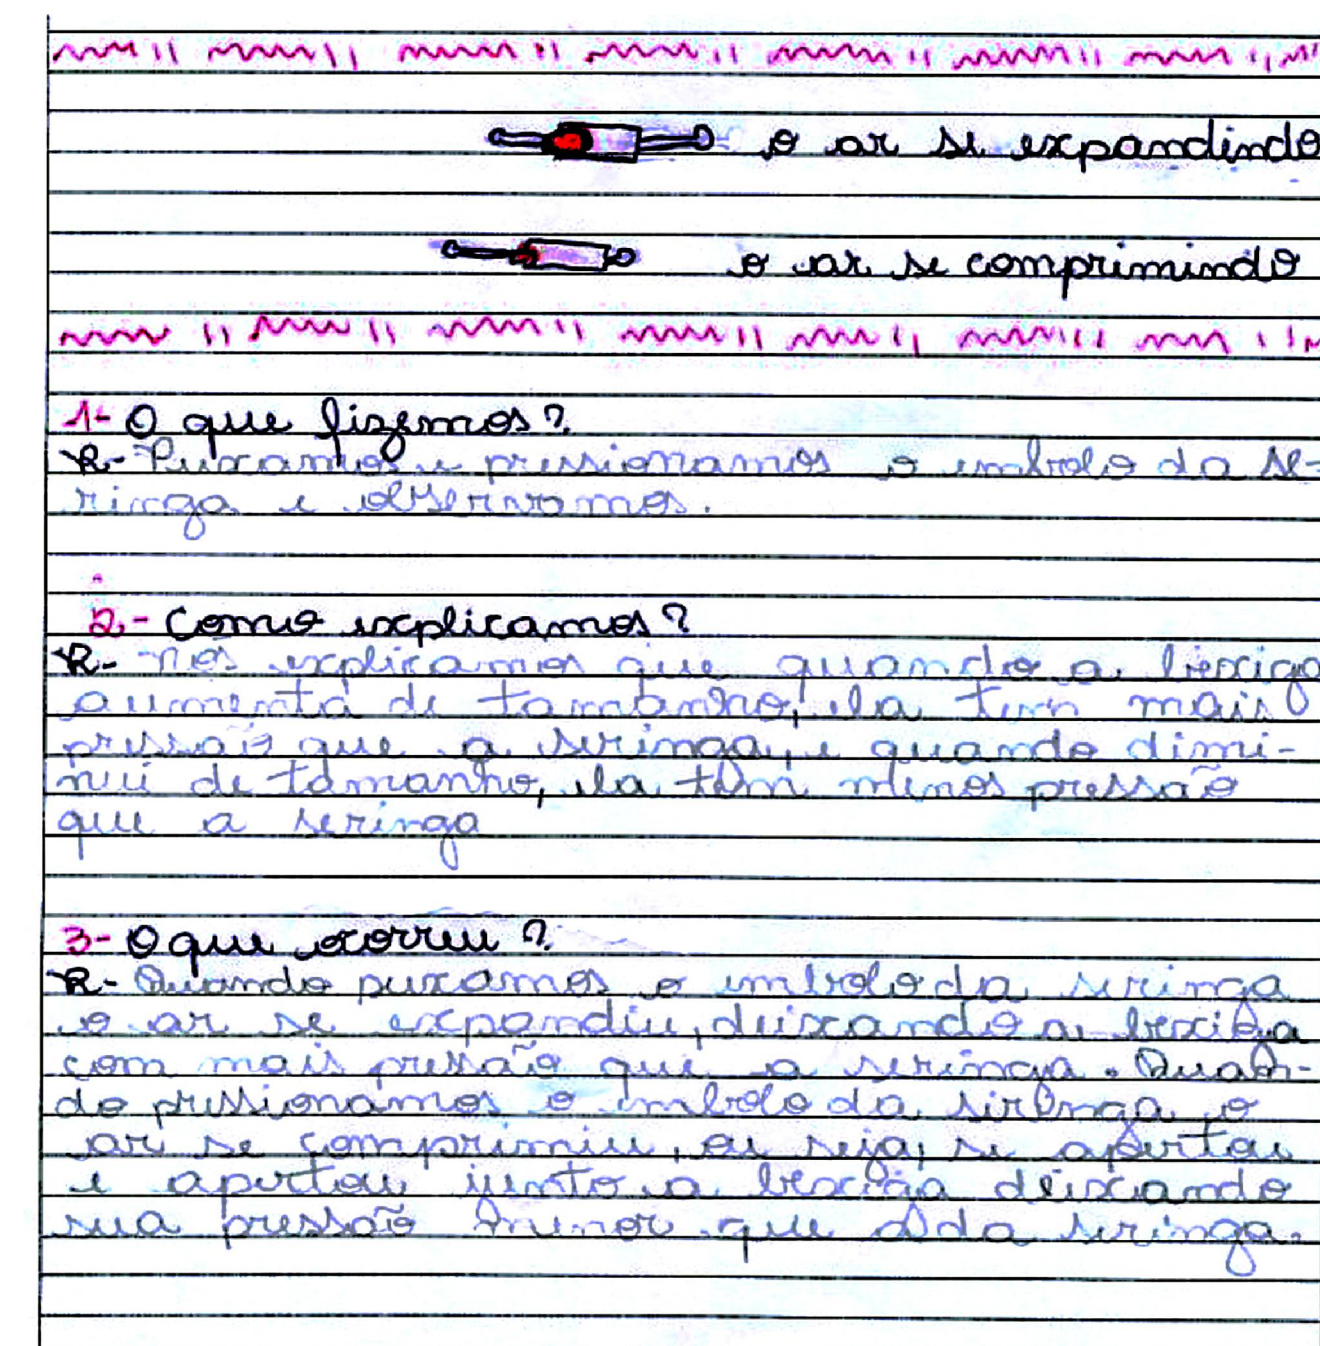 o ar se expandindo
o ar se comprimindo
1- O que fizemos?
R- Puxamos e pressionamos o embolo da se-
ringa e observamos.
2- Como explicamos?
R- Nós explicamos que quando a bexiga
aumenta de tamanho, ela tem mais
pressão que a seringa, e quando dimi-
nui de tamanho, ela tem menos pressão
que a seringa
3- O que ocorreu?
R- Quando puxamos o embolo da seringa
o ar se expandiu, deixando a bexiga
com mais pressão que a seringa. Quan-
do pressionamos o embolo da siringa o
ar se comprimiu, ou seja, se apertou
e apertou junto a bexiga deixando
sua pressão menor que a da seringa.